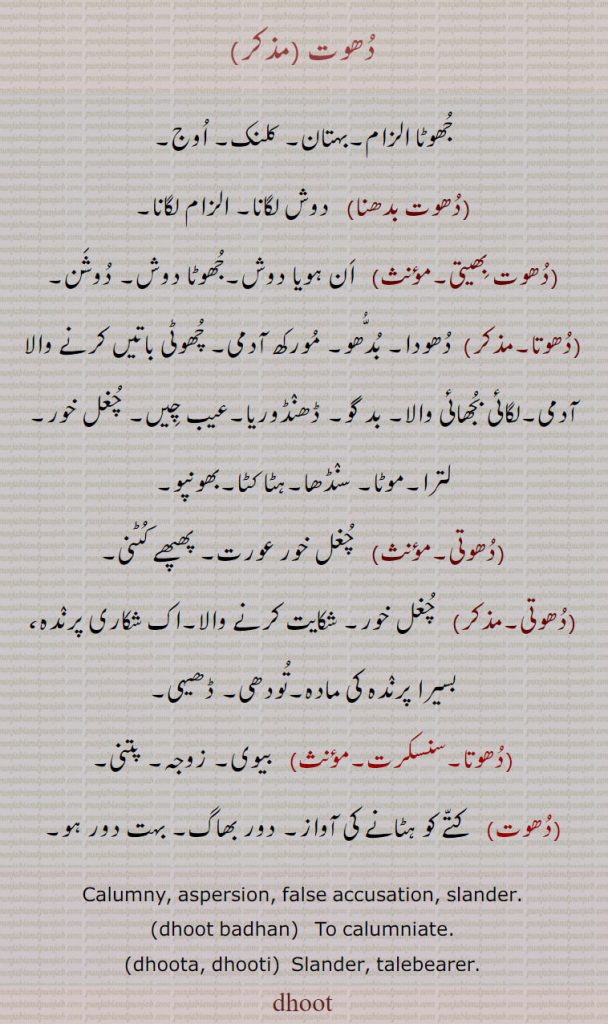 دُھوت (مذکر)
جُھوٹا الزام۔ بہتان۔ کلنک۔ اُوج۔
(دُھوت بدھنا) دوش لگانا۔ الزام لگانا۔
(دُھوت بِھیتی۔ مؤنث) اَن ہویا دوش۔ جُھوٹا دوش۔ دُوشَن۔
(دُھوتا۔ مذکر) دُھودا۔ بُدُّھو۔ مُورکھ آدمی۔ چُھوٹی باتیں کرنے والا
آدمی۔ لگائی بُجھائی والا۔ بد گو۔ ڈھنْڈوریا۔ عیب چِیں۔ چُغل خور۔
لترا۔ موٹا۔ سنْڈھا۔ ہٹا کٹا۔ بھونپو۔
(دُھوتی۔ مؤنث) چُغل خور عورت۔ پھپھے کُٹنی۔
(دُھوتی۔ مذکر) چُغل خور۔ شکایت کرنے والا۔ اک شکاری پرنْدہ،
بسیرا پرنْدہ کی مادہ۔ تُودھی۔ ڈھیی۔
(دُھوتا۔ سنسکرت۔ مؤنث) بیوی۔ زوجہ۔ پتنی۔
(دُھوت) کتّے کو ہٹانے کی آواز۔ دور بھاگ۔ بہت دور ہو۔
Calumny, aspersion, false accusation, slander.
(dhoot badhan) To calumniate.
(dhoota, dhooti) Slander, talebearer.
dhoot